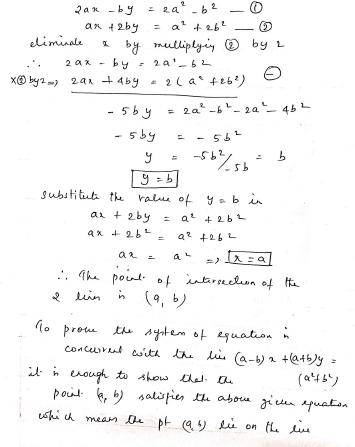 2ax - by = 2a² - b² — ①
ax + 2by = a² + 2b² — ②
eliminate x by multiplying ② by 2
∴ 2ax - by = 2a² - b²
x② by 2 ⇒ 2ax + 4by = 2(a² + 2b²) ⊖
- 5by = 2a² - b² - 2a² - 4b²
- 5by = - 5b²
y = -5b²/-5b = b
y = b
substitute the value of y = b in
ax + 2by = a² + 2b²
ax + 2b² = a² + 2b²
ax = a² ⇒ x = a
∴ The point of intersection of the
2 lines is (a, b)
To prove the system of equation is
concurrent with the line (a-b)x + (a+b)y =
(a²+b²)
it is enough to show that the
point (a, b) satisfies the above given equation
which means the pt (a, b) lie on the line